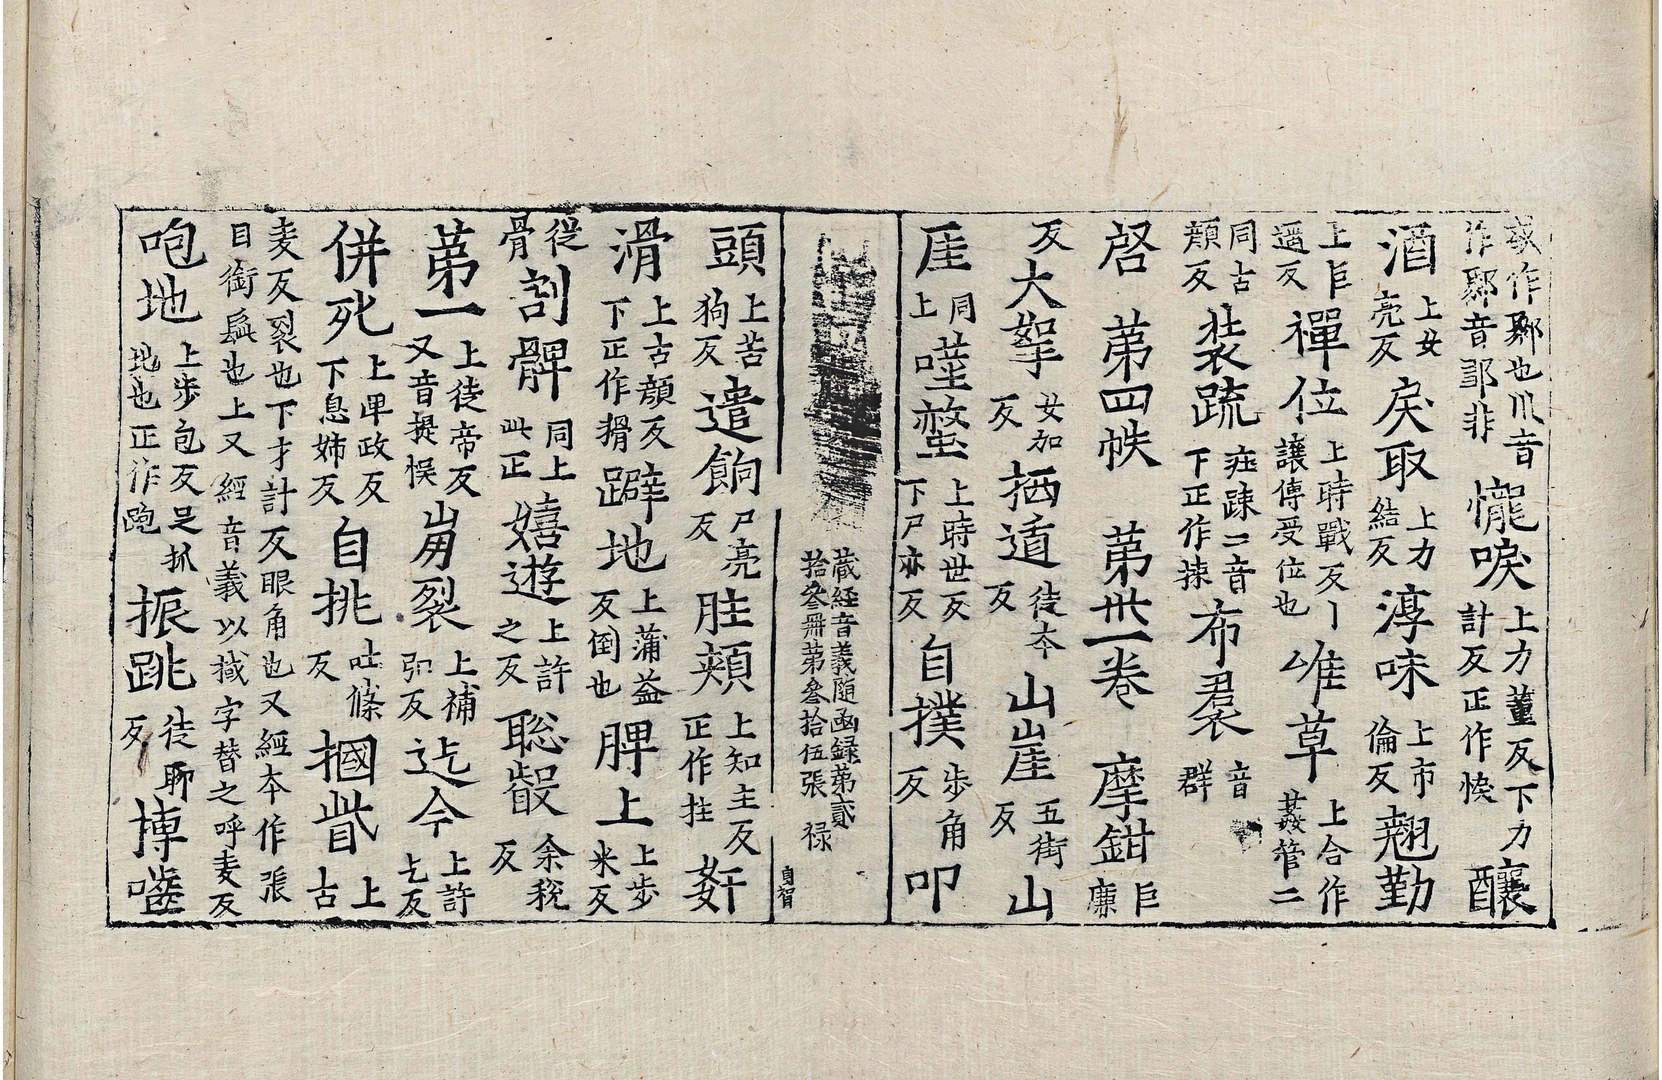 作鄹也爪音作鄹音鄹非㦬唳上力董反下力計反正作悷釀
酒上女亮反戾取上力結反淳味上市倫反翹勤
上巨遥反禪位上時戰反丨讓傳受位也䧹草上合作葌管二
同古顏反裝疏疰踈二音下正作揀布裠音群
啓第四帙第卅一卷摩鉗巨廉
反大挐女加反栖遁徒夲反山崖五街反山
厓同上㘁螫上時世反下尸亦反自撲步角反叩
藏經音義隨函録第貳
拾叄冊第叄拾伍張 禄
自智
頭上苦狗反遣餉尸亮反䏔頰上知主反正作拄姧
滑上古顏反下正作猾躃地上蒲益反倒也脾上上步米反
骨從割髀同上此正嬉遊上許之反聡叡余稅反
第一上徒帝反又音提悮崩裂上補弘反迄今上許乞反
併死上卑政反下息姊反自挑吐條反摑眥上古
麦反裂也下才計反眼角也又經夲作張
目銜䲶也上又經音義以摑字替之呼麦反
咆地上步包反足抓地也正作跑振跳徒聊反博㗱